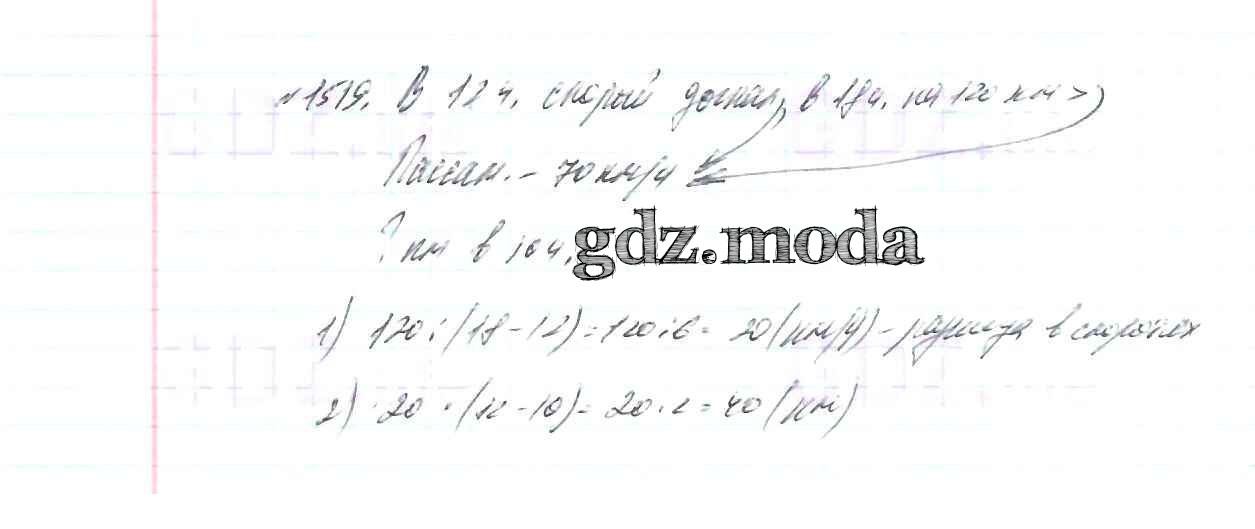 №1519. В 12 ч. скорый догнал, в 18 ч. на 120 км >
Пассаж. – 70 км/ч
? км в 10 ч.
gdz.moda
1) 120 : (18 - 12) = 120 : 6 = 20 (км/ч) - разница в скоростях
2) 20 · (12 - 10) = 20 · 2 = 40 (км)